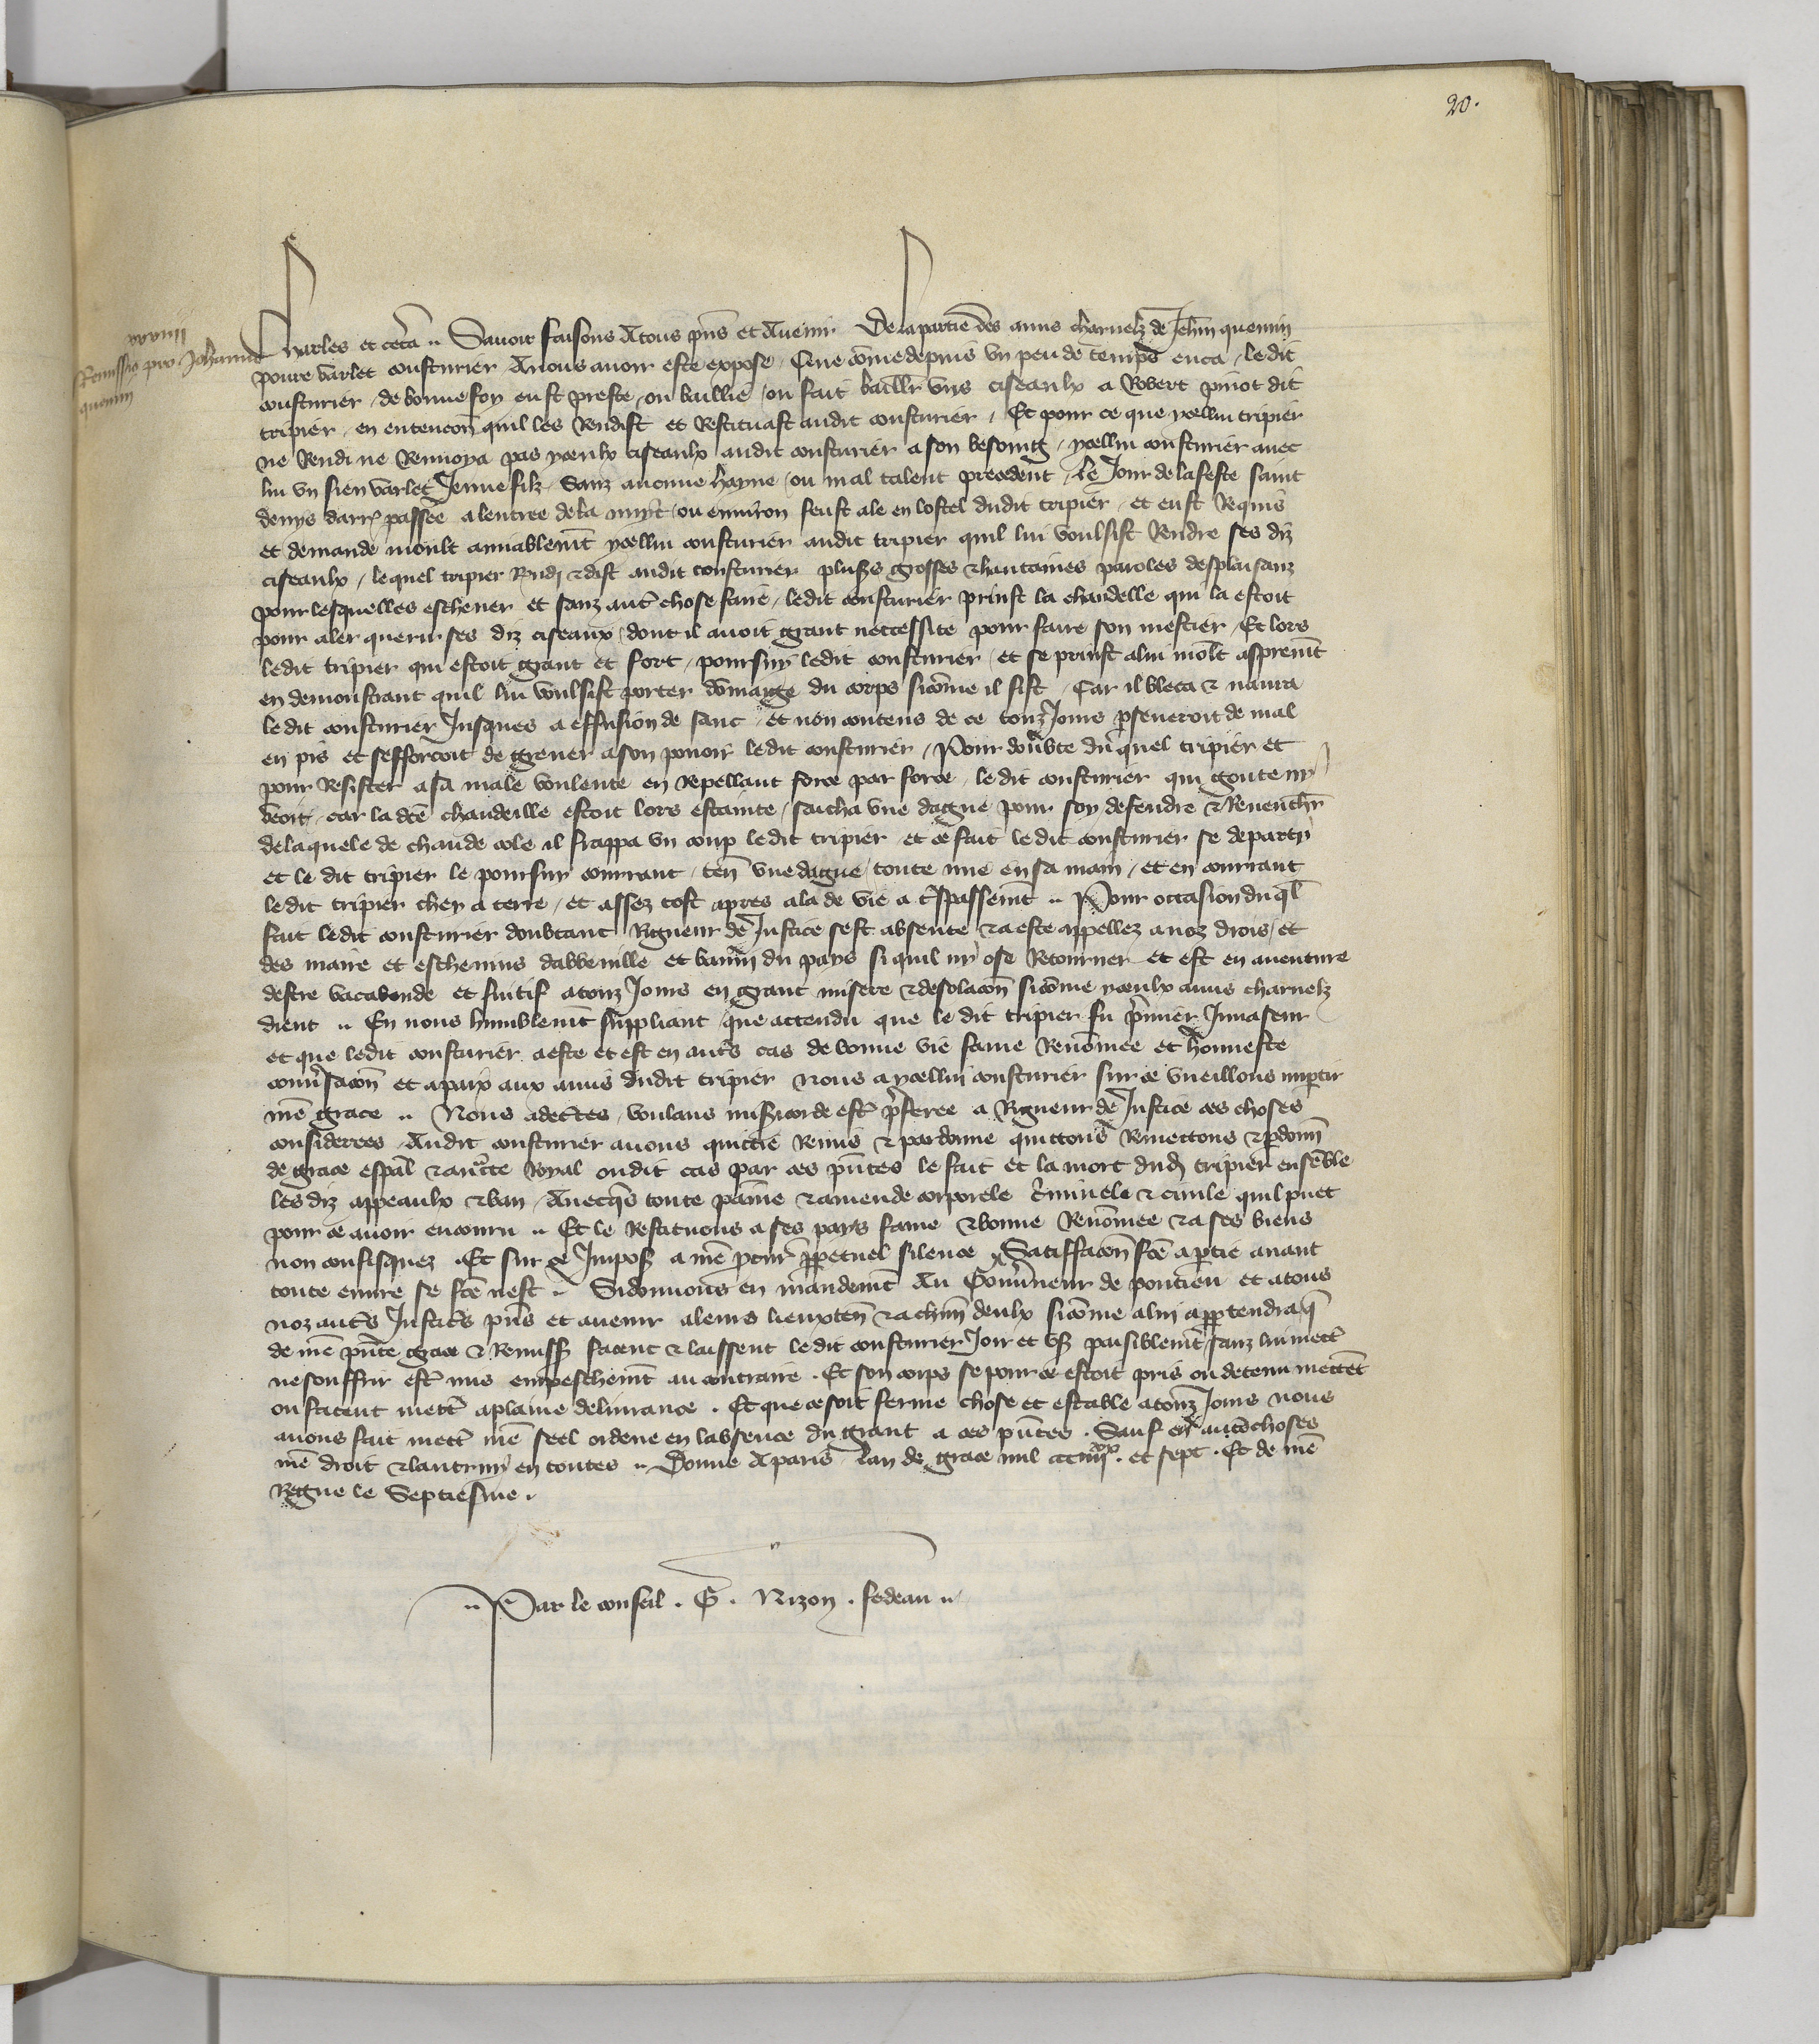 20.
xxviii
Remissio pro Johanne
quenin
Charles et cetera .. Savoir faisons A tous pñs et Avenir De la partie des amis charnelz de Jehan quenin
povre varlet cousturier A nous avoir este expose Que cõme depuis un peu de temps enca le dit
cousturier de bonne foy eust preste ou baillie ou fait baillr uns ciseaulx a Robert pinot dit
tripier en entencõn quil les Rendist et Restituast audit cousturier Et pour ce que ycellui tripier
ne Rendi ne Renvoya pas yceulx ciseaulx audit cousturier a son besoing ycellui cousturier avec
lui un sien varlet Jeune filz Sanz aucune hayne ou mal talent precedent le Jour de la feste saint
denys darr passee a lentree de la nuyt ou environ feust ale en lostel dudit tripier et eust Requis
et demande moult amiablemt ycellui cousturier audit tripier quil lui voulsist Rendre ses diz
ciseaulx lequel tripier Rndi & dist audit cousturier plusrs grosses & hautaines paroles desplaisanz
pour lesquelles eschever et sanz autr chose faire ledit cousturier prinst la chandelle qui la estoit
pour aler querir ses diz ciseaux dont il avoit grant neccessite pour faire son mestier Et lors
ledit tripier qui estoit grant et fort poursuy ledit cousturier et se prinst a lui molt aspremt
en demoustrant quil lui voulsist porter dõmaige du corps sicõme il fist Car il bleca & navra
ledit cousturier Jusques a effusion de sanc et non contens de ce touz Jours pseveroit de mal
en pis et sefforcoit de grever a son povoir ledit cousturier Pour doubte du quel tripier et
pour Resister a sa male voulente en Repellant force par force ledit cousturier qui goute ny
veoit car la dcē chandeille estoit lors estainte sacha une dague pour soy defendre & Revenchr
de laquele de chaude cole il frappa un coup ledit tripier et ce fait le dit cousturier se party
et le dit tripier le poursuy courrant ten̄ une dague toute nue en sa main et en courrant
ledit tripier chey a terre et assez tost apres ala de vie a t̃spassemt .. Pour occasion duql
fait ledit cousturier doubtant Rigueur de Justice sest absente & a este appellez a noz drois et
des maire et eschevins dabbeville et banny du pays si quil ny ose Retourner et est en aventure
destre vacabonde et fuitif a touz Jours en grant misere & desolacõn sicõme yceulx amis charnelz
dient .. En nous humblemt suppliant que attendu que le dit tripier fu premier Invaseur
et que ledit cousturier a este et est en autrs cas de bonne vie fame Renõmee et honneste
convsacõn et a paix aux amis dudit tripier nous a ycellui cousturier sur ce vueillons impartir
nr̄e grace .. Nous adcertes voulans misericorde estr̃ preferee a Rigueur de Justice ces choses
considerees Audit cousturier avons quictie Remis & pardonne quictons Remettons & pdonn̄
de grace espãl & auctte Royal ou dit cas par ces pñtes le fait et la mort dud tripier ensemble
les diz appeaulx & ban Avecqs toute paine & amende corporele criminele & civile quil puet
pour ce avoir encouru .. Et le Restituons a ses pays fame & bonne Renõmee & a ses biens
non confisquez Et sur ce Imposs a nr̄e pcur ppetuel silence Satiffacõn fcē a ptie avant
toute euvre se fcē nest .. Si donnons en mandemt Au Gouvneur de pontieu et a tous
noz autrs Justicrs pñs et avenir a leurs lieuxten̄ & a chun deulx sicõme a lui appartendra q̃
de nr̄e pñte grace & Remiss facent & laissent ledit cousturier Joir et us paisiblemt sanz lui mettr
ne souffrir estr̃ mis empeschemt au contraire . Et son corps se pour ce estoit pris ou detenu mettēt
ou facent mettr a plaine delivrance . Et que ce soit ferme chose et estable a touz Jours nous
avons fait mettr nr̄e seel ordene en labsence du grant a ces pñtes . Sauf en autrs choses
nr̄e droit & lautruy en toutes .. Donne A paris lan de grace mil ccc iiiixx . et sept . Et de nr̄e
Regne le Septiesme .
.. Par le conseil . G . Rizon . fedeau ..